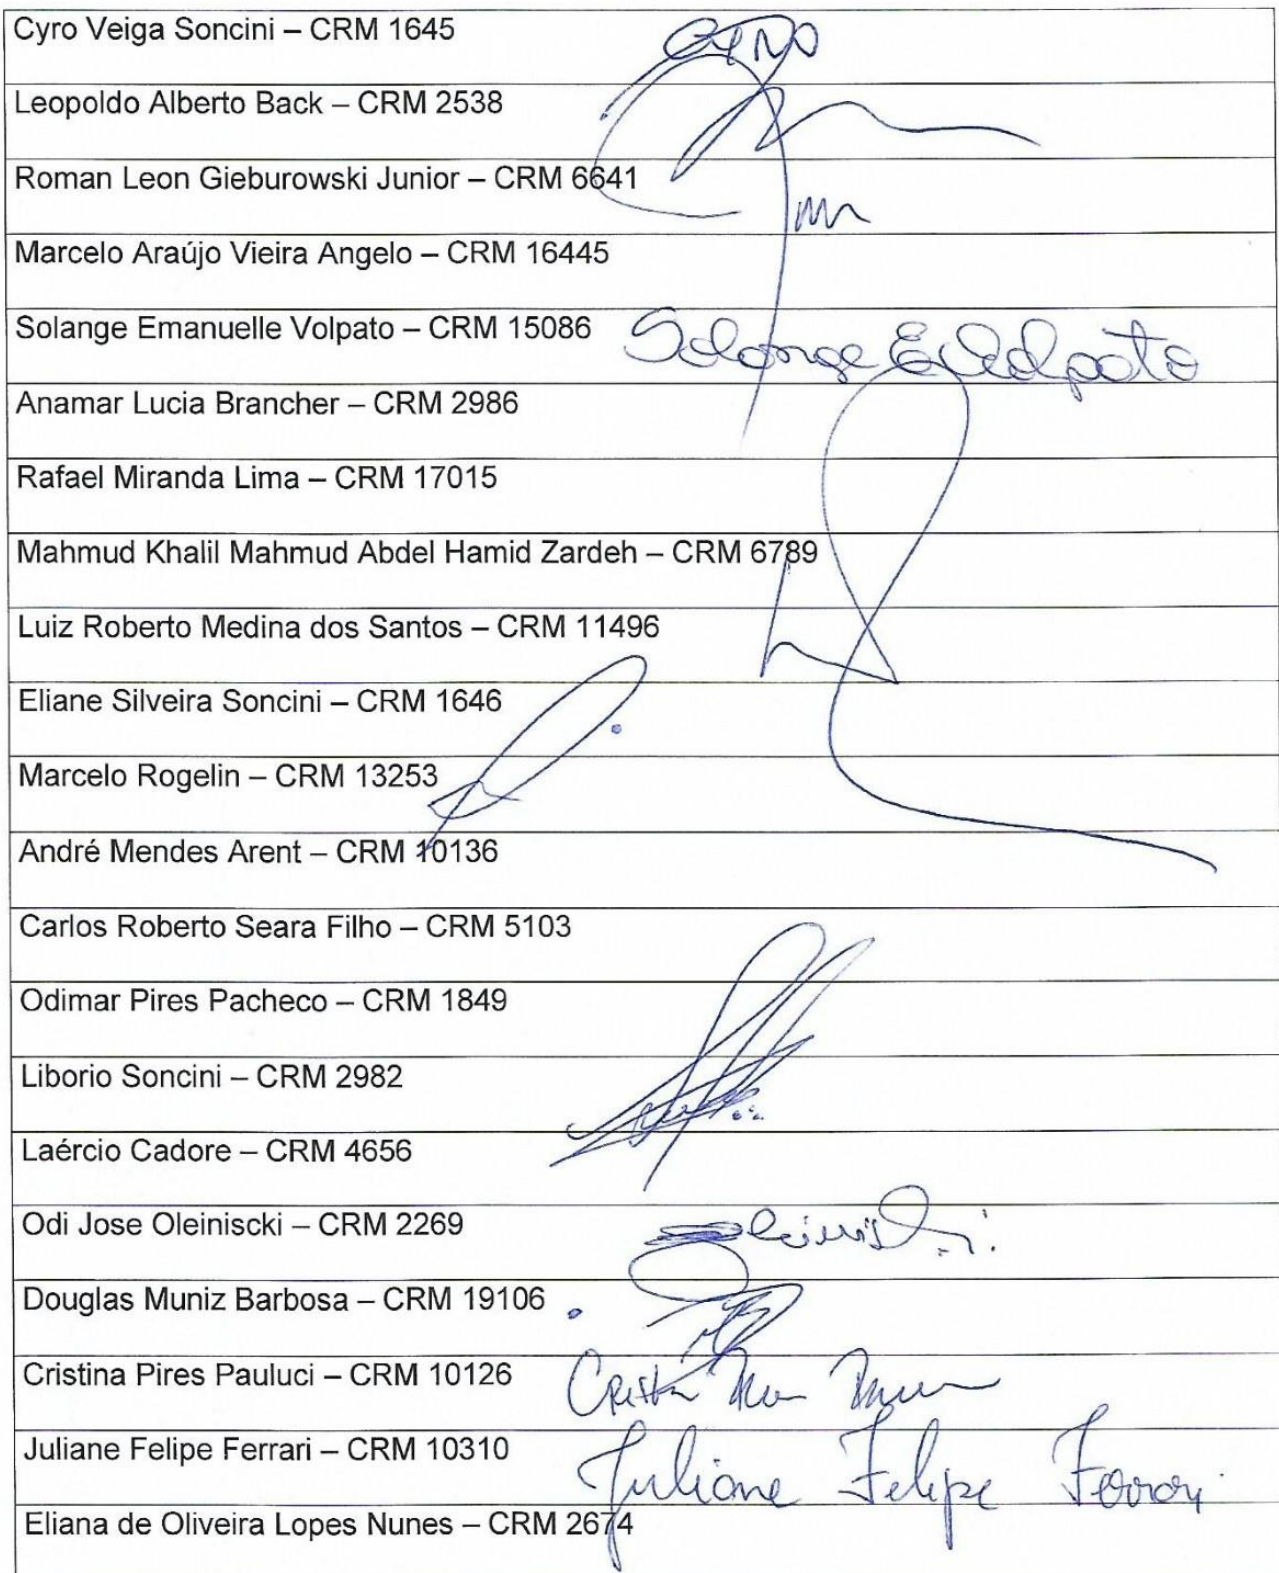 Cyro Veiga Soncini – CRM 1645 Cyro
Leopoldo Alberto Back – CRM 2538
Roman Leon Gieburowski Junior – CRM 6641
Marcelo Araújo Vieira Angelo – CRM 16445
Solange Emanuelle Volpato – CRM 15086 Solange E Volpato
Anamar Lucia Brancher – CRM 2986
Rafael Miranda Lima – CRM 17015
Mahmud Khalil Mahmud Abdel Hamid Zardeh – CRM 6789
Luiz Roberto Medina dos Santos – CRM 11496
Eliane Silveira Soncini – CRM 1646
Marcelo Rogelin – CRM 13253
André Mendes Arent – CRM 10136
Carlos Roberto Seara Filho – CRM 5103
Odimar Pires Pacheco – CRM 1849
Liborio Soncini – CRM 2982
Laércio Cadore – CRM 4656
Odi Jose Oleiniscki – CRM 2269
Douglas Muniz Barbosa – CRM 19106
Cristina Pires Pauluci – CRM 10126
Juliane Felipe Ferrari – CRM 10310 Juliane Felipe Ferrari
Eliana de Oliveira Lopes Nunes – CRM 2674